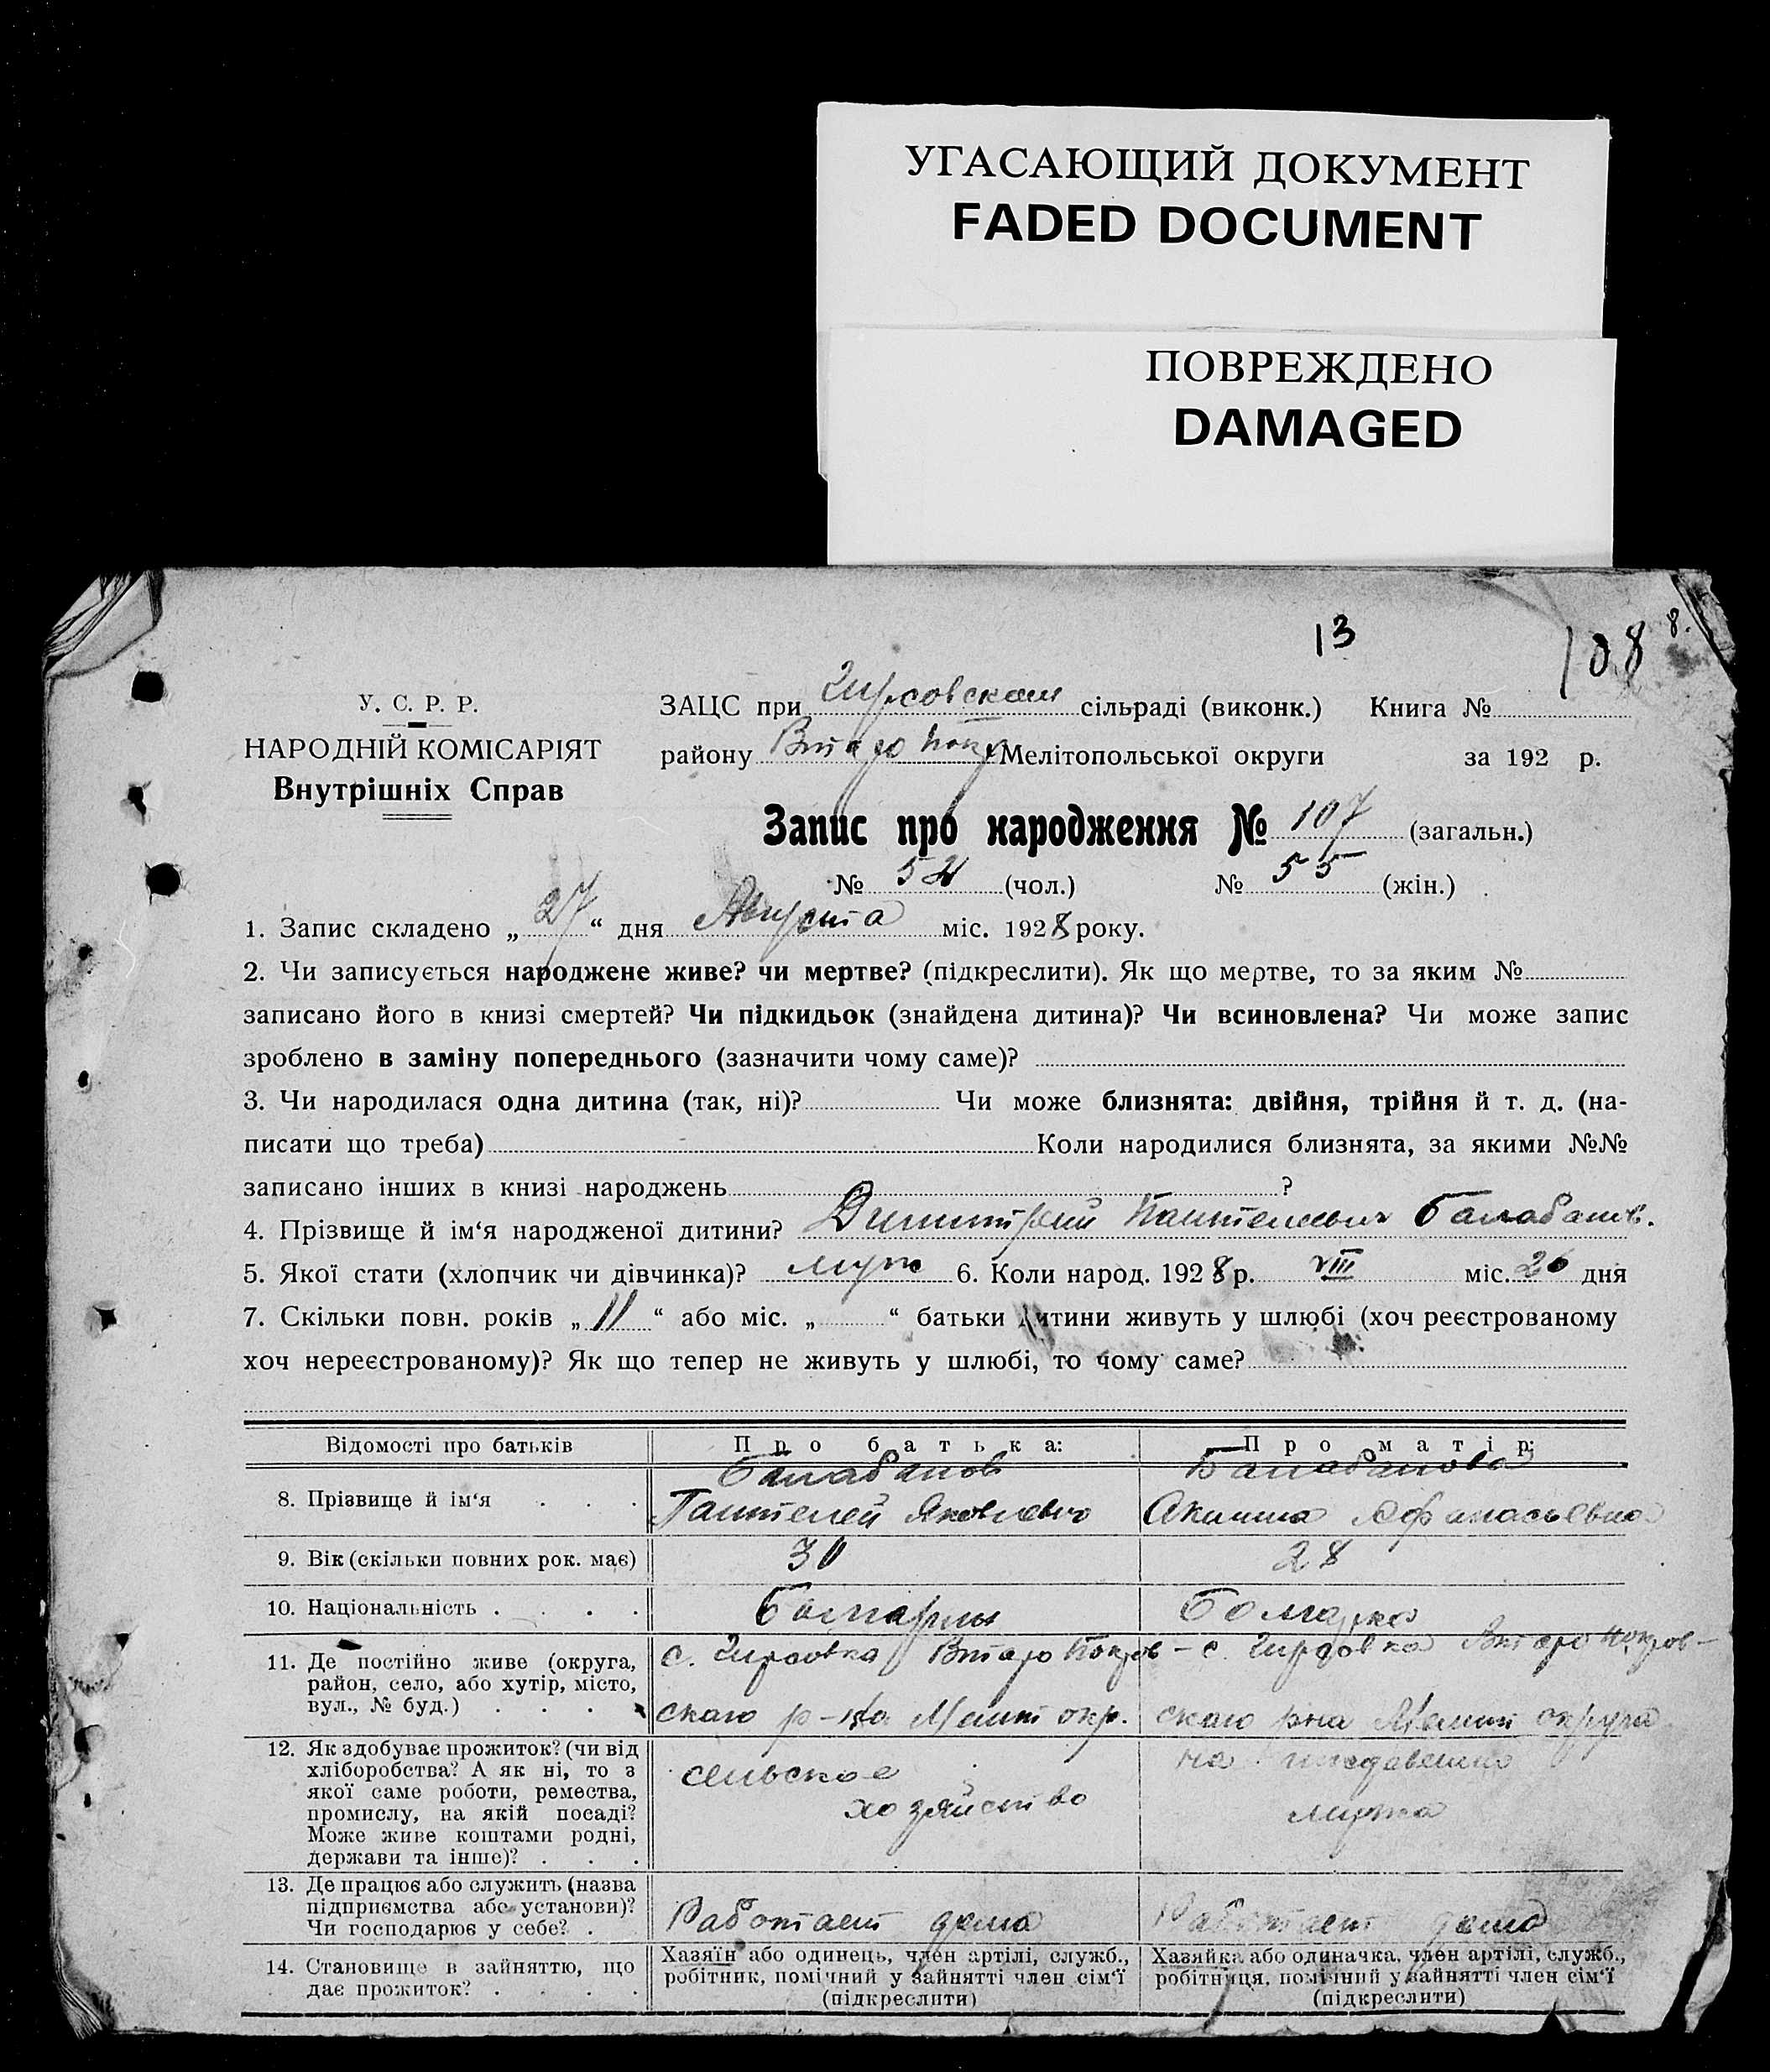 УГАСАЮЩИЙ ДОКУМЕНТ
FADED DOCUMENT
ПОВРЕЖДЕНО
DAMAGED
13
108 8.
У. С. Р. Р.
НАРОДНІЙ КОМІСАРІЯТ
Внутрішніх Справ
ЗАЦС при Гирсовском сільраді (виконк.) Книга №
району Втаро Покр Мелітопольської округи за 192 р.
Запис про народження № 107 (загальн.)
№ 52 (чол.) № 55 (жін.)
1. Запис складено „ 27 “ дня Августа міс. 1928 року.
2. Чи записується народжене живе? чи мертве? (підкреслити). Як що мертве, то за яким №
записано його в книзі смертей? Чи підкидьок (знайдена дитина)? Чи всиновлена? Чи може запис
зроблено в заміну попереднього (зазначити чому саме)?
3. Чи народилася одна дитина (так, ні)? Чи може близнята: двійня, трійня й т. д. (на-
писати що треба) Коли народилися близнята, за якими №№
записано інших в книзі народжень ?
4. Прізвище й ім‘я народженої дитини? Димитрий Пантелевич Балабанов.
5. Якої стати (хлопчик чи дівчинка)? муж 6. Коли народ. 1928 р. VIII міс. 26 дня
7. Скільки повн. років „ 11 “ або міс. „ “ батьки дитини живуть у шлюбі (хоч реєстрованому
хоч нереєстрованому)? Як що тепер не живуть у шлюбі, то чому саме?
Відомості про батьків Про батька: Про матір:
8. Прізвище й ім‘я . . . Балабанов Пантелей Яковлевич Балабанова Акилина Афанасьевна
9. Вік (скільки повних рок. має) 30 28
10. Національність . . . . Болгарин Болгарка
11. Де постійно живе (округа,
район, село, або хутір, місто,
вул., № буд.) . . . .
с. Гирсовка Втаро Покров-
скаго р-на Мелит окр.
с. Гирсовка Втаро Покров-
скаго р-на Мелит округа
12. Як здобуває прожиток? (чи від
хліборобства? А як ні, то з
якої саме роботи, ремества,
промислу, на якій посаді?
Може живе коштами родні,
держави та інше)? . . .
сельское
хозяйство
на иждевении
мужа
13. Де працює або служить (назва
підприємства або установи)?
Чи господарює у себе? .
Работает дома
Работает дома
14. Становище в зайняттю, що
дає прожиток? . . . .
Хазяїн або одинець, член артілі, служб.,
робітник, помічний у зайнятті член сім‘ї
(підкреслити)
Хазяйка або одиначка, член артілі, служб.,
робітниця, помічний у зайнятті член сім‘ї
(підкреслити)